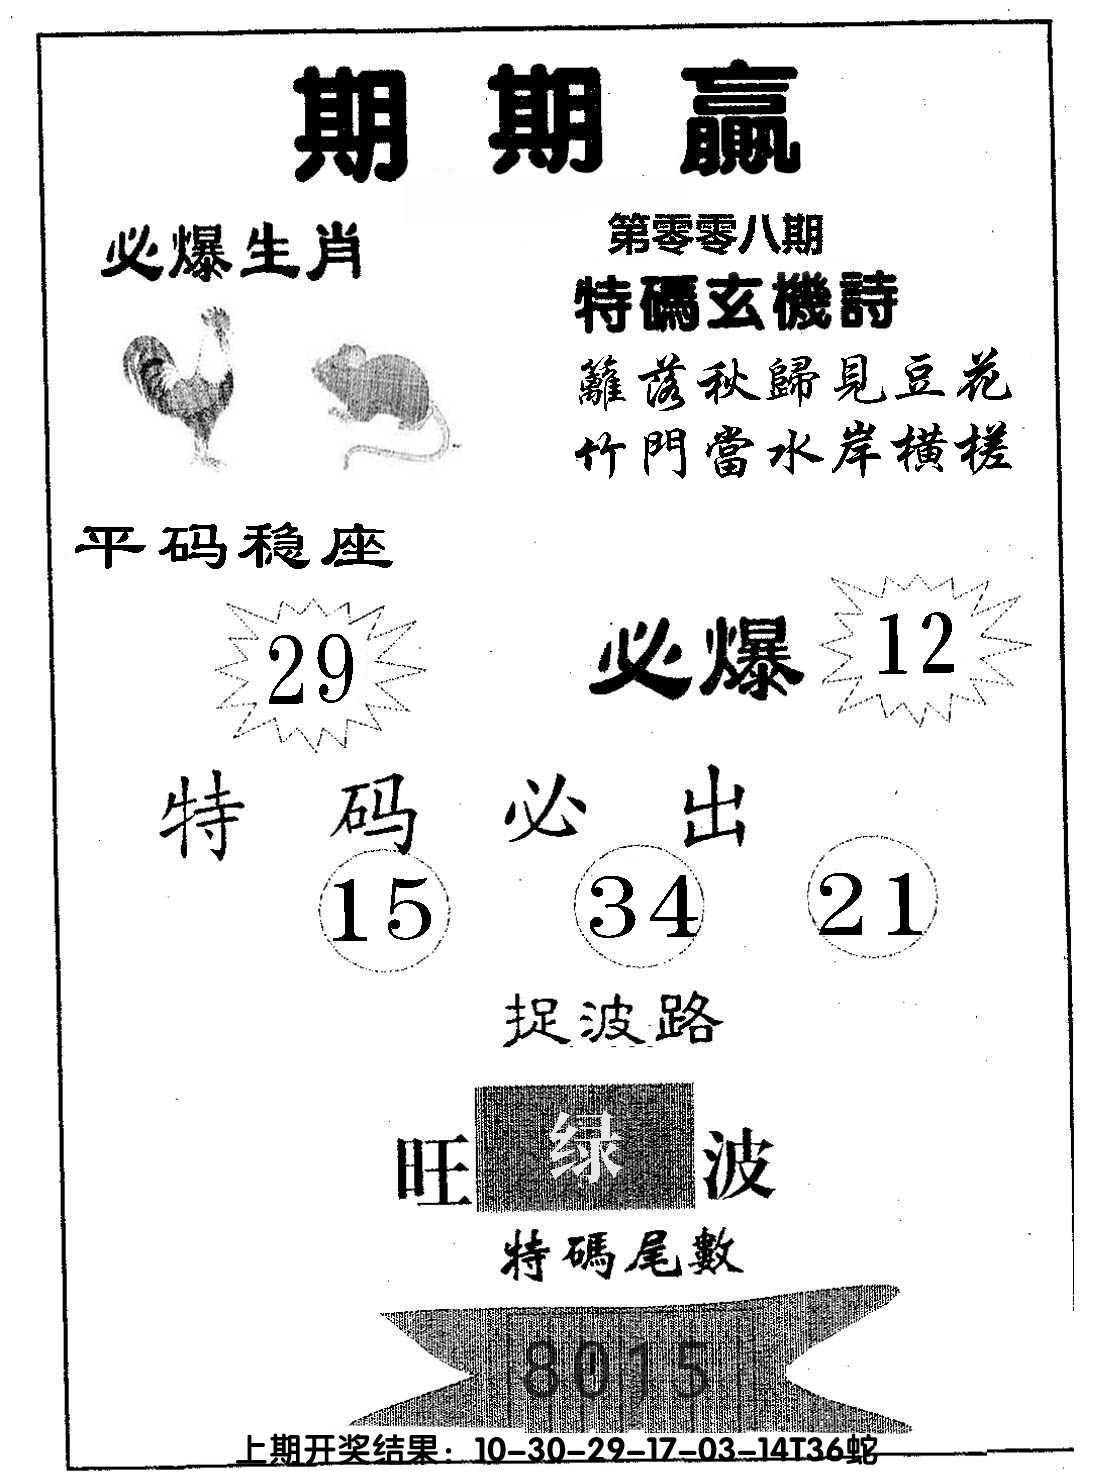 期期赢
必爆生肖
第零零八期
特碼玄機詩
籬落秋歸見豆花
竹門當水岸橫槎
平码稳座
29
必爆
12
特码必出
15 34 21
捉波路
旺绿波
特碼尾數
8015
上期开奖结果：10-30-29-17-03-14T36蛇